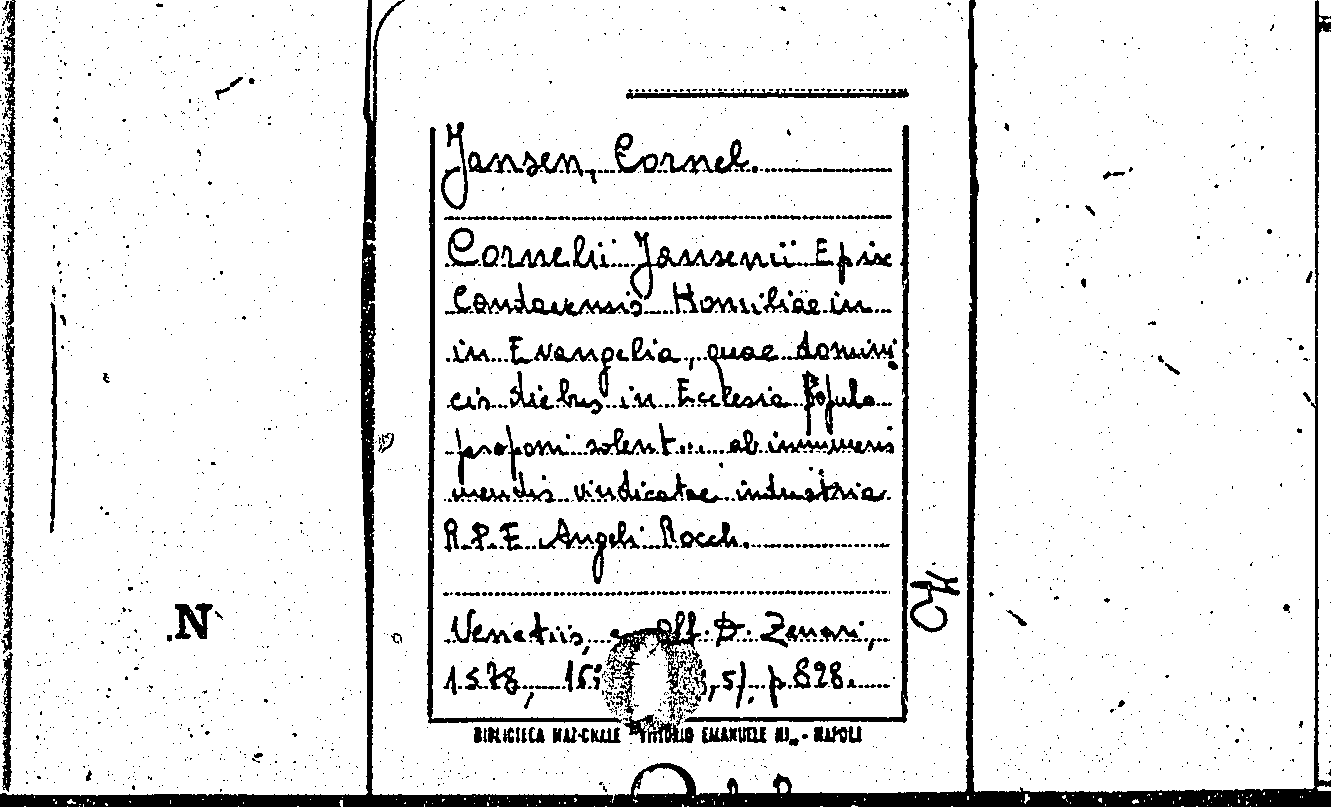 Jansen, Cornel.
Cornelii Jansenii Episc
Gandavensis Homiliae in
in Evangelia, quae domini
cis diebus in Ecclesia Populo
proponi solent... ab innumeris
mendis vindicatae industria
R.P.F. Angeli Rocch.
Venetiis, off. D. Zenari,
1578, p. 828.
BIBLIOTECA NAZIONALE VITTORIO EMANUELE III - NAPOLI
.N